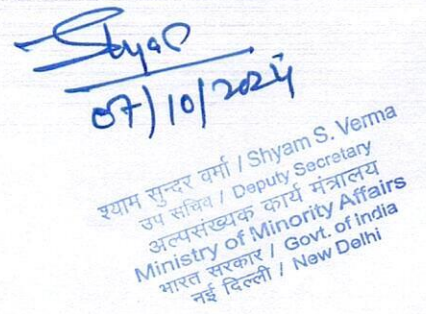 Shyam
07/10/2024
श्याम सुन्दर वर्मा / Shyam S. Verma
उप सचिव / Deputy Secretary
अल्पसंख्यक कार्य मंत्रालय
Ministry of Minority Affairs
भारत सरकार / Govt. of India
नई दिल्ली / New Delhi